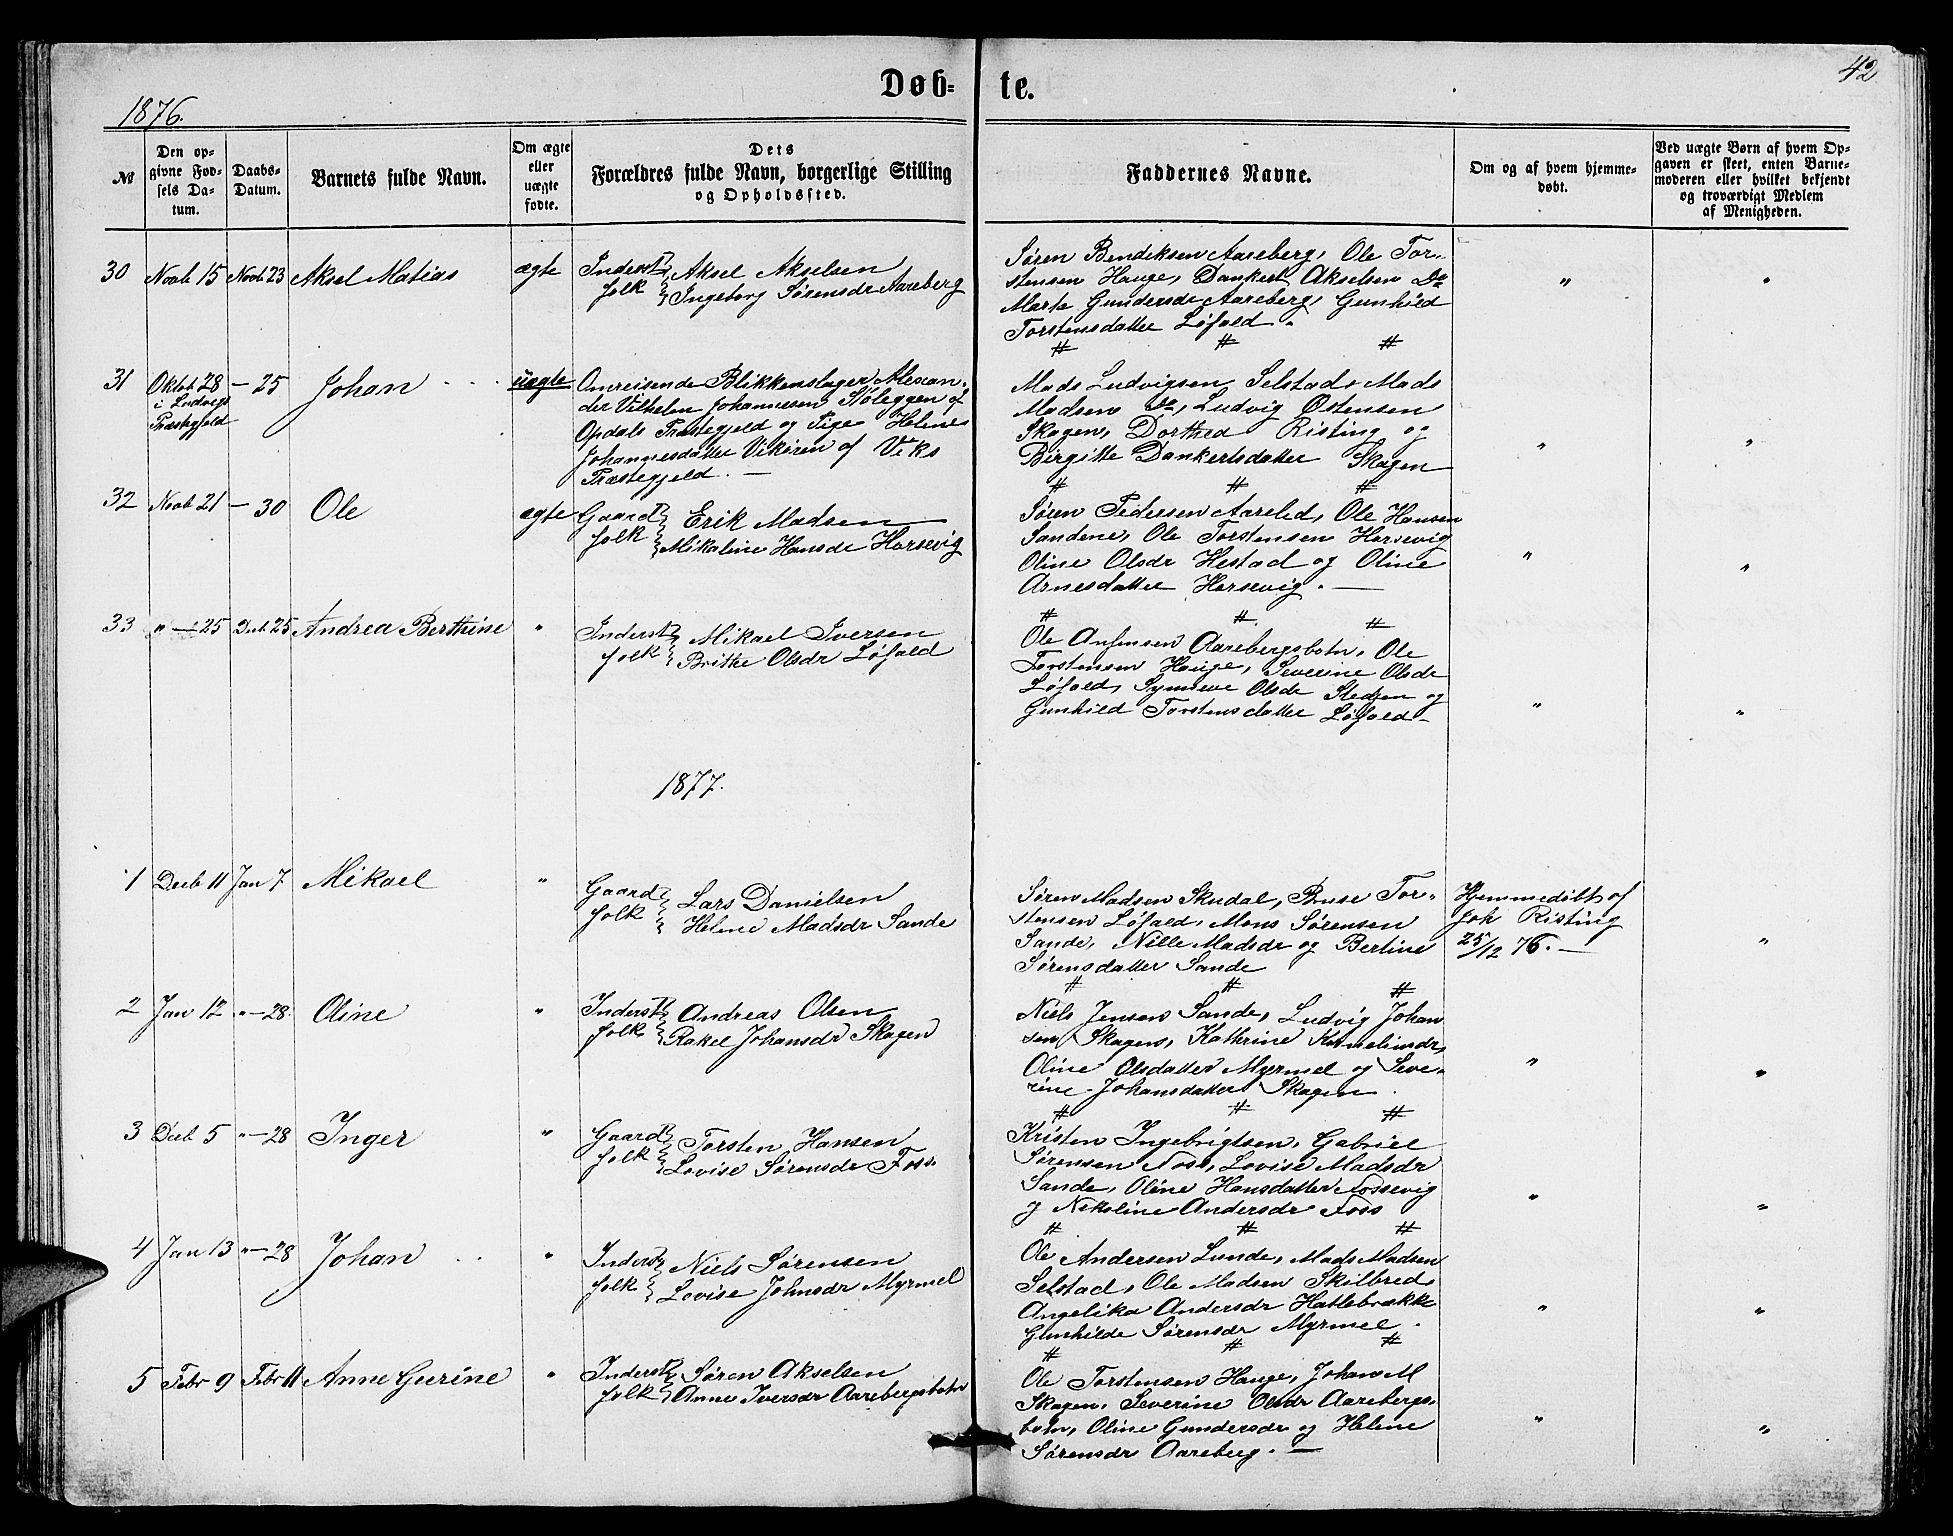 Døb-
te.
42
1876.
№
Den op-
givne Fød-
sels Da-
tum.
Daabs-
Datum.
Barnets fulde Navn.
Om ægte
eller
uægte
fødte.
Dets
Forældres fulde Navn, borgerlige Stilling
og Opholdssted.
Faddernes Navne.
Om og af hvem hjemme-
døbt.
Ved uægte Børn af hvem Op-
gaven er skeet, enten Barne-
moderen eller hvilket bekjendt
og troværdigt Medlem
af Menigheden.
30 Novb 15 Novb 23 Aksel Matias ægte
Inderst
folk
Aksel Akselsen
Ingeborg Sørensdr Aareberg
Søren Bendiksen Aareberg, Ole Tor-
stensen Hauge, Dankert Akselsen Do
Marte Gundersdr Aareberg, Gunhild
Torstensdatter Løfald. "
31 Oktob 28 — 25 Johan uægte
i Ludvigs
Præstegjeld
Omreisende Blikkenslager Alexan-
der Vilhelm Johannesen Støleggen af
Opdals Præstegjeld og Pige Helene
Johannesdatter Vikøren af Viks
Præstegjeld. —
Mads Ludvigsen Selstad, Mads
Madsen Do, Ludvig Østensen
Skagen, Dorthea Risting og
Birgitte Dankertsdatter Skagen
32 Novb 21 — 30 Ole ægte
Gaard
folk
Erik Madsen
Mikaline Hansdr Horsevig
Søren Pedersen Aarelid, Ole Hansen
Sandene, Ole Torstensen Horsevig
Oline Olsdr Hestad og Oline
Arnesdatter Horsevig. —
33 " — 25 Decb 25 Andrea Berthine "
Inderst
folk
Mikael Iversen
Brithe Olsdr Løfald
Ole Anfinsen Aarebergsbotn, Ole
Torstensen Hauge, Severine Olsdr
Løfald, Synneve Olsdr Steien og
Gunhild Torstensdatter Løfald —
1877.
1 Decb 11 Jan 7 Mikael "
Gaard
folk
Lars Danielsen
Helene Madsdr Sande
Søren Madsen Skudal, Bruse Tor-
stensen Løfald, Mons Sørensen
Sande, Nille Madsdr og Bertine
Sørensdatter Sande
Hjemmedøbt af
Joh Risting
25/12 76. —
2 Jan 12 " — 28 Oline "
Inderst
folk
Andreas Olsen
Rakel Johansdr Skagen
Niels Jensen Sande, Ludvig Johan
sen Skagen, Kathrine Kornelimdr,
Oline Olsdatter Myrmel og Seve-
rine Johansdatter Skagen.
3 Decb 5 " — 28 Inger "
Gaard
folk
Torsten Hansen
Lovise Sørensdr Foss.
Kristen Ingebrigtsen, Gabriel
Sørensen Foss, Lovise Madsdr
Sande, Oline Hansdatter Fossevig
og Nikoline Andersdr Foss
4 Jan 13 " — 28 Johan "
Inderst
folk
Niels Sørensen
Lovise Johnsdr Myrmel
Ole Andersen Lunde, Mads Madsen
Selstad, Ole Madsen Skilbred,
Angelika Andersdr Hatlebrække
Gunhilde Sørensdr Myrmel.
5 Febr 9 Febr 11 Anne Gurine "
Inderst
folk
Søren Akselsen
Anne Iversdr Aarebergsbotn
Ole Torstensen Hauge, Johan M
Skagen, Severine Olsdr Aarebergs-
botn, Oline Gundersdr og Helene
Sørensdr Aareberg. —